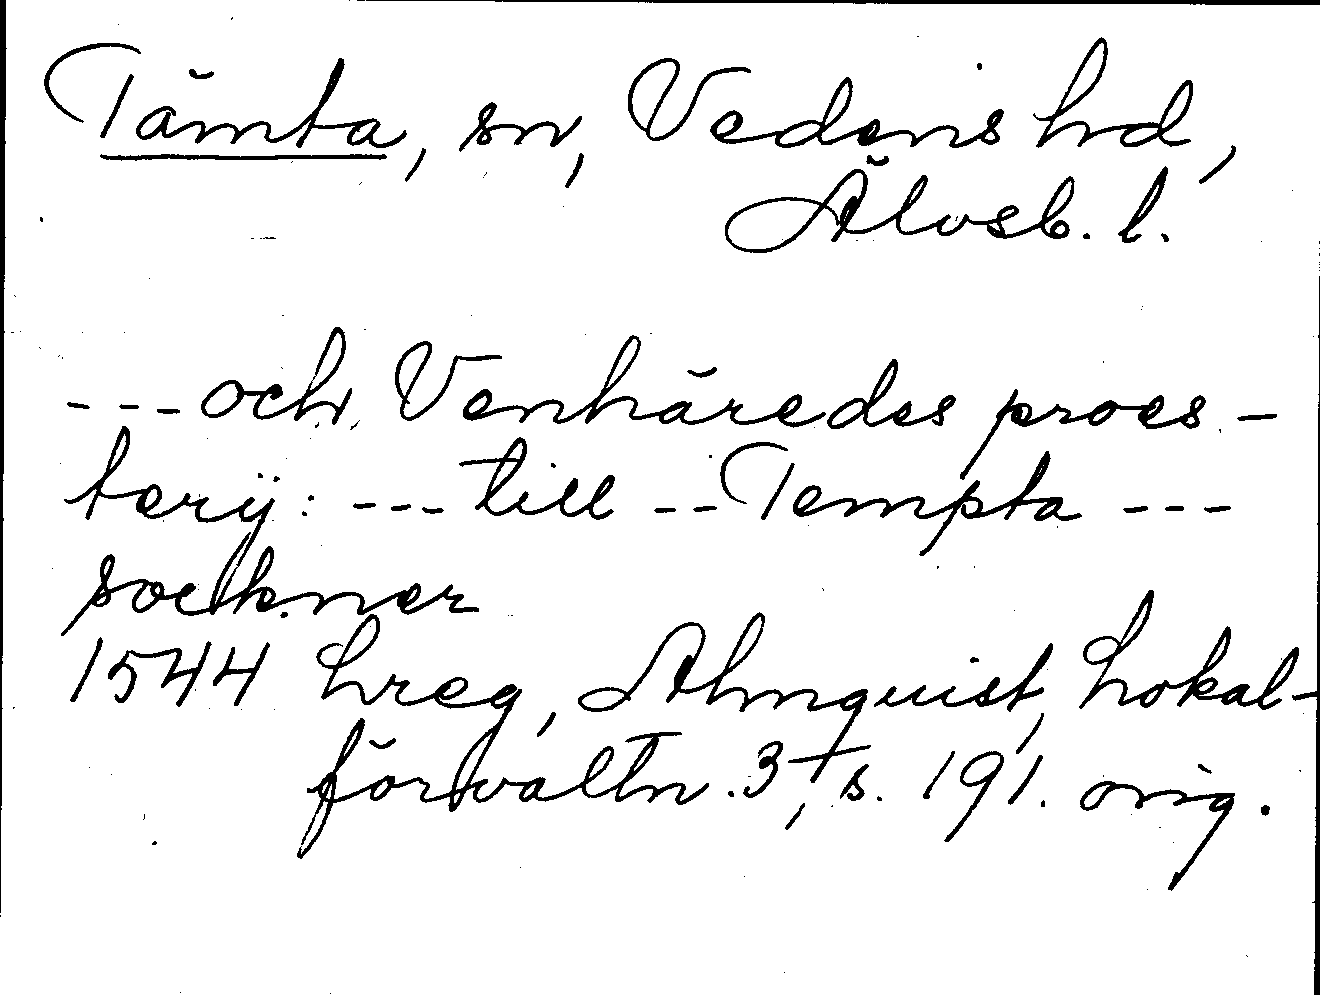 Tämta, sn, Vedens hd,
Älvsb. l.
--- och Venhäredes proes-
terij: --- till -- Tempta ---
sockner
1544 Lreg, Almquist, Lokal-
förvaltn. 3, s. 191. orig.